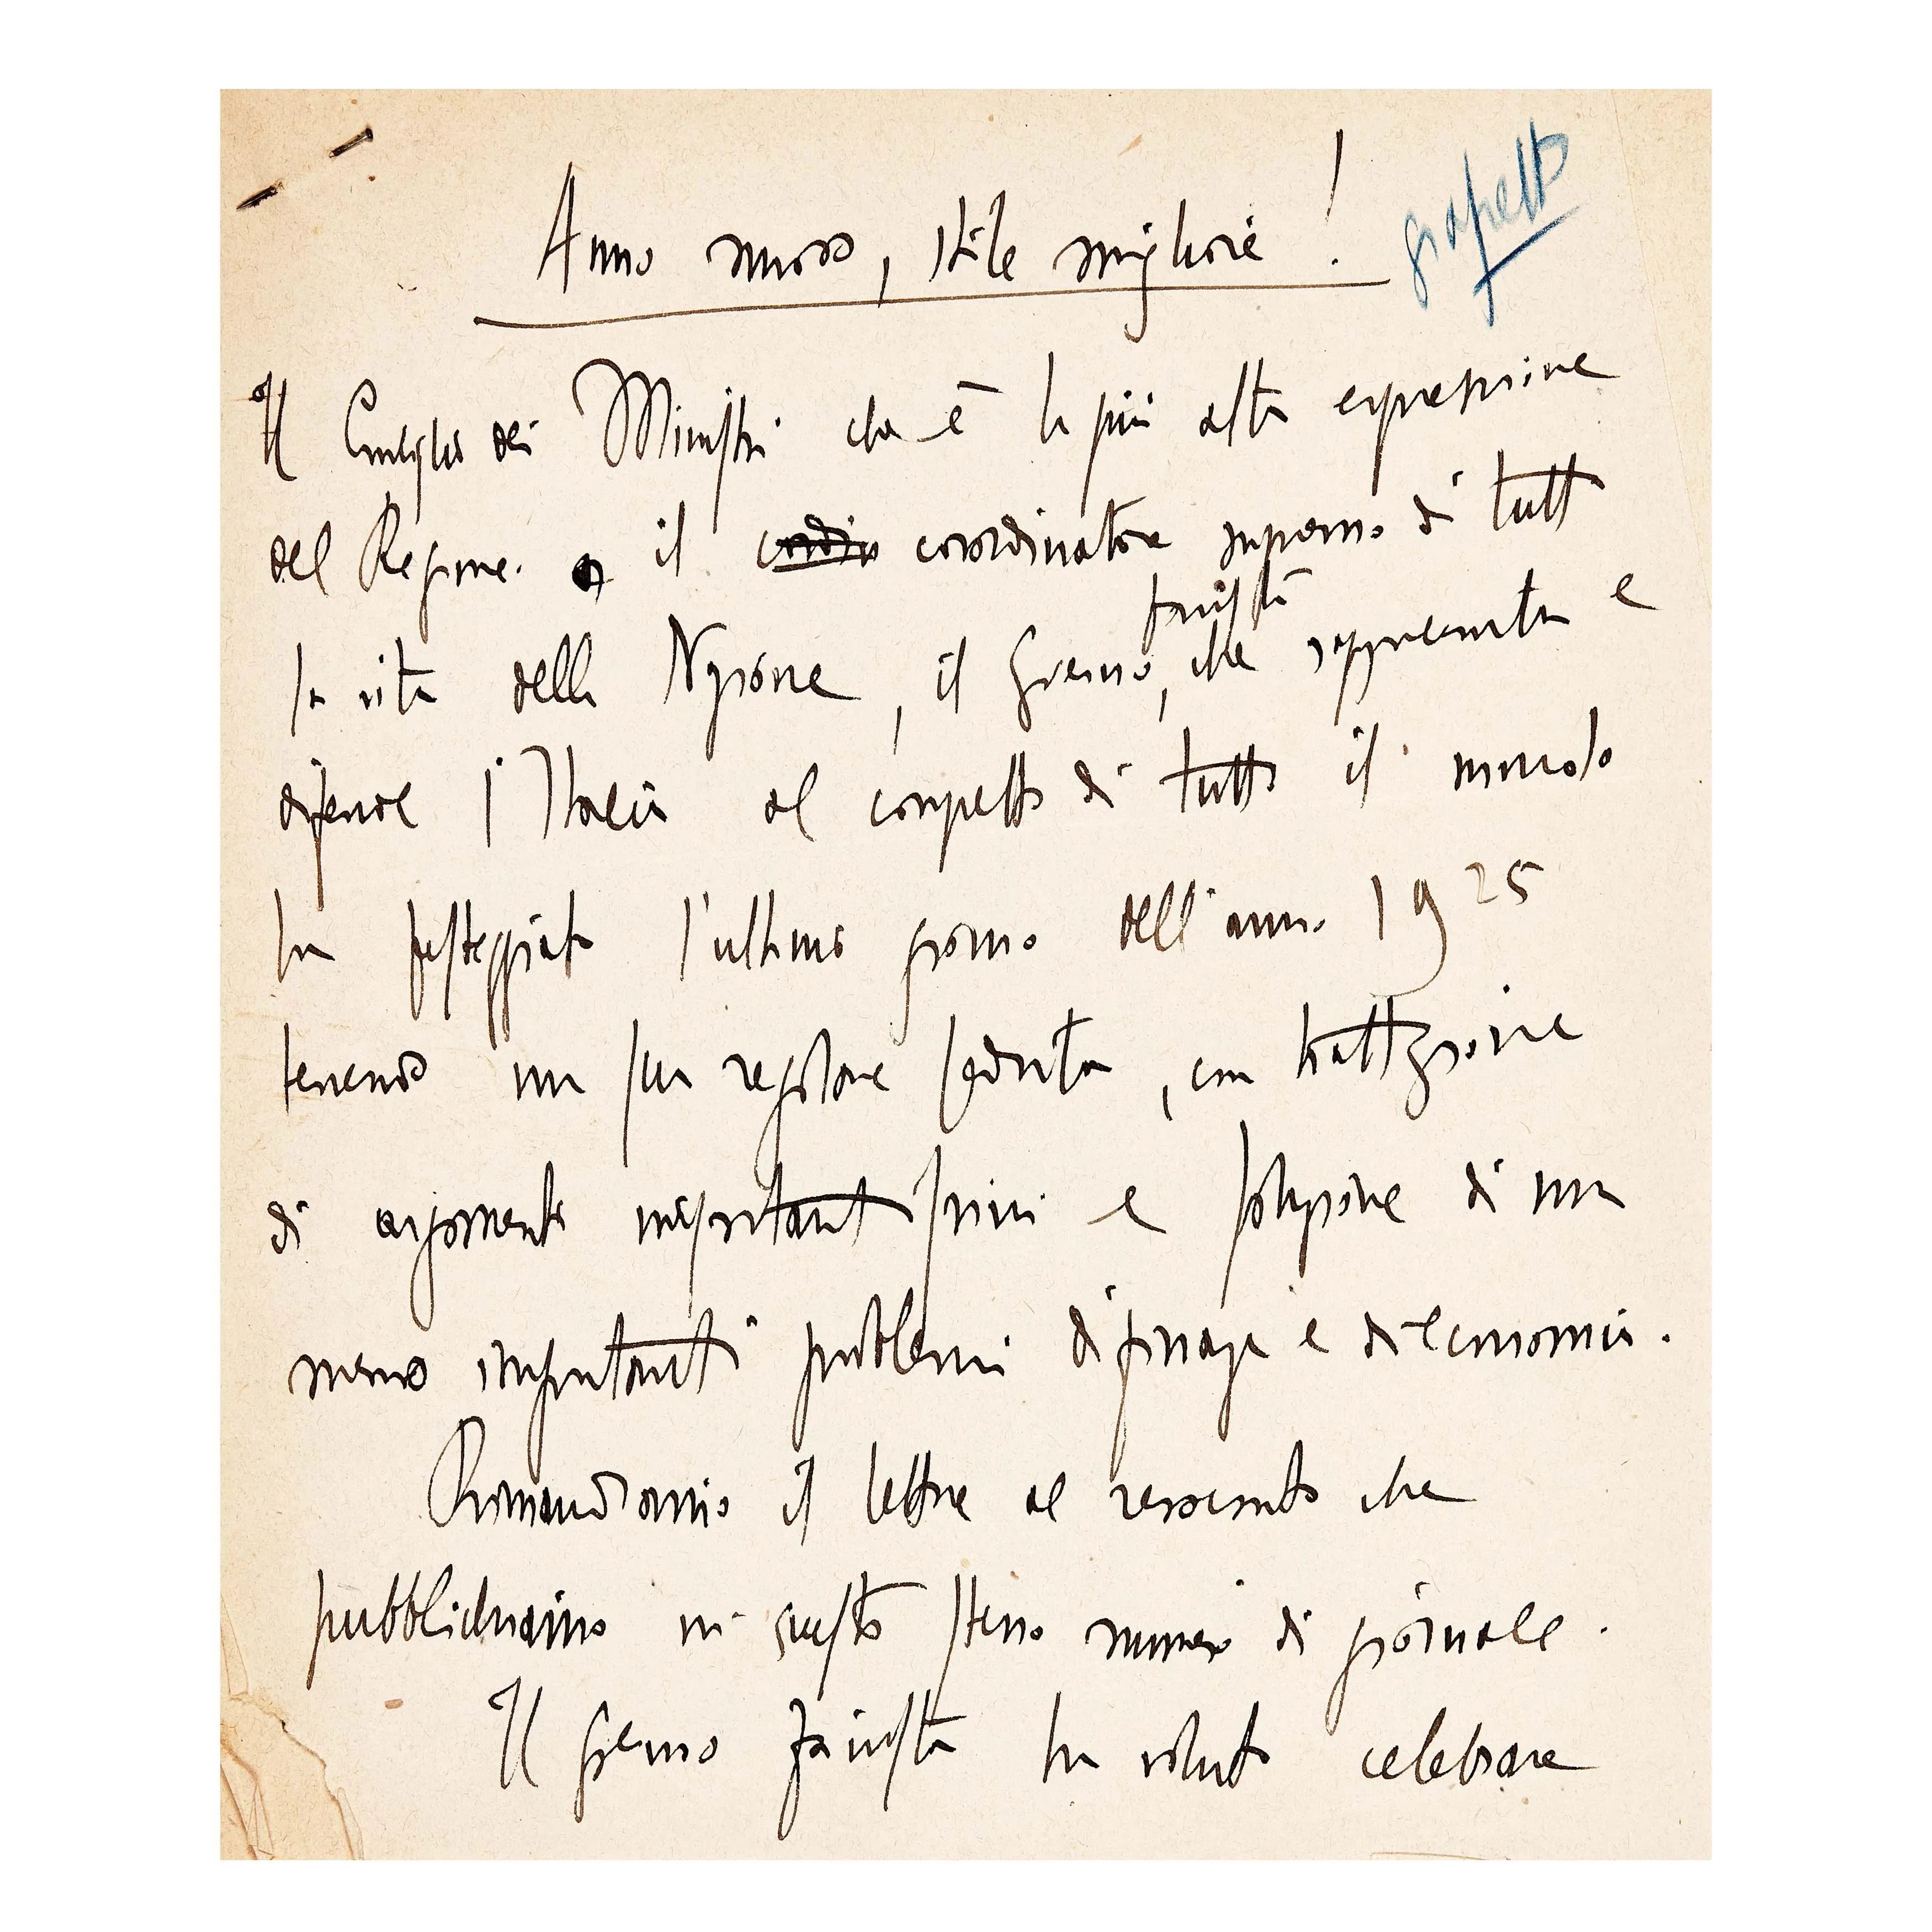 Anno nuovo, stile migliore!
grassetto
Il Consiglio dei Ministri che è la più alta espressione
del Regime. il cordin coordinatore supremo di tutta
fascista
la vita della Nazione, il Governo, che rappresenta e
difende l'Italia al cospetto di tutto il mondo
ha festeggiato l'ultimo giorno dell'anno 1925
tenendo una sua regolare seduta, con trattazione
di argomenti importantissimi e soluzione di non
meno importanti problemi di finanza e di economia.
Rimandiamo il lettore al resoconto che
pubblichiamo in questo stesso numero di giornale.
Il governo fascista ha voluto celebrare